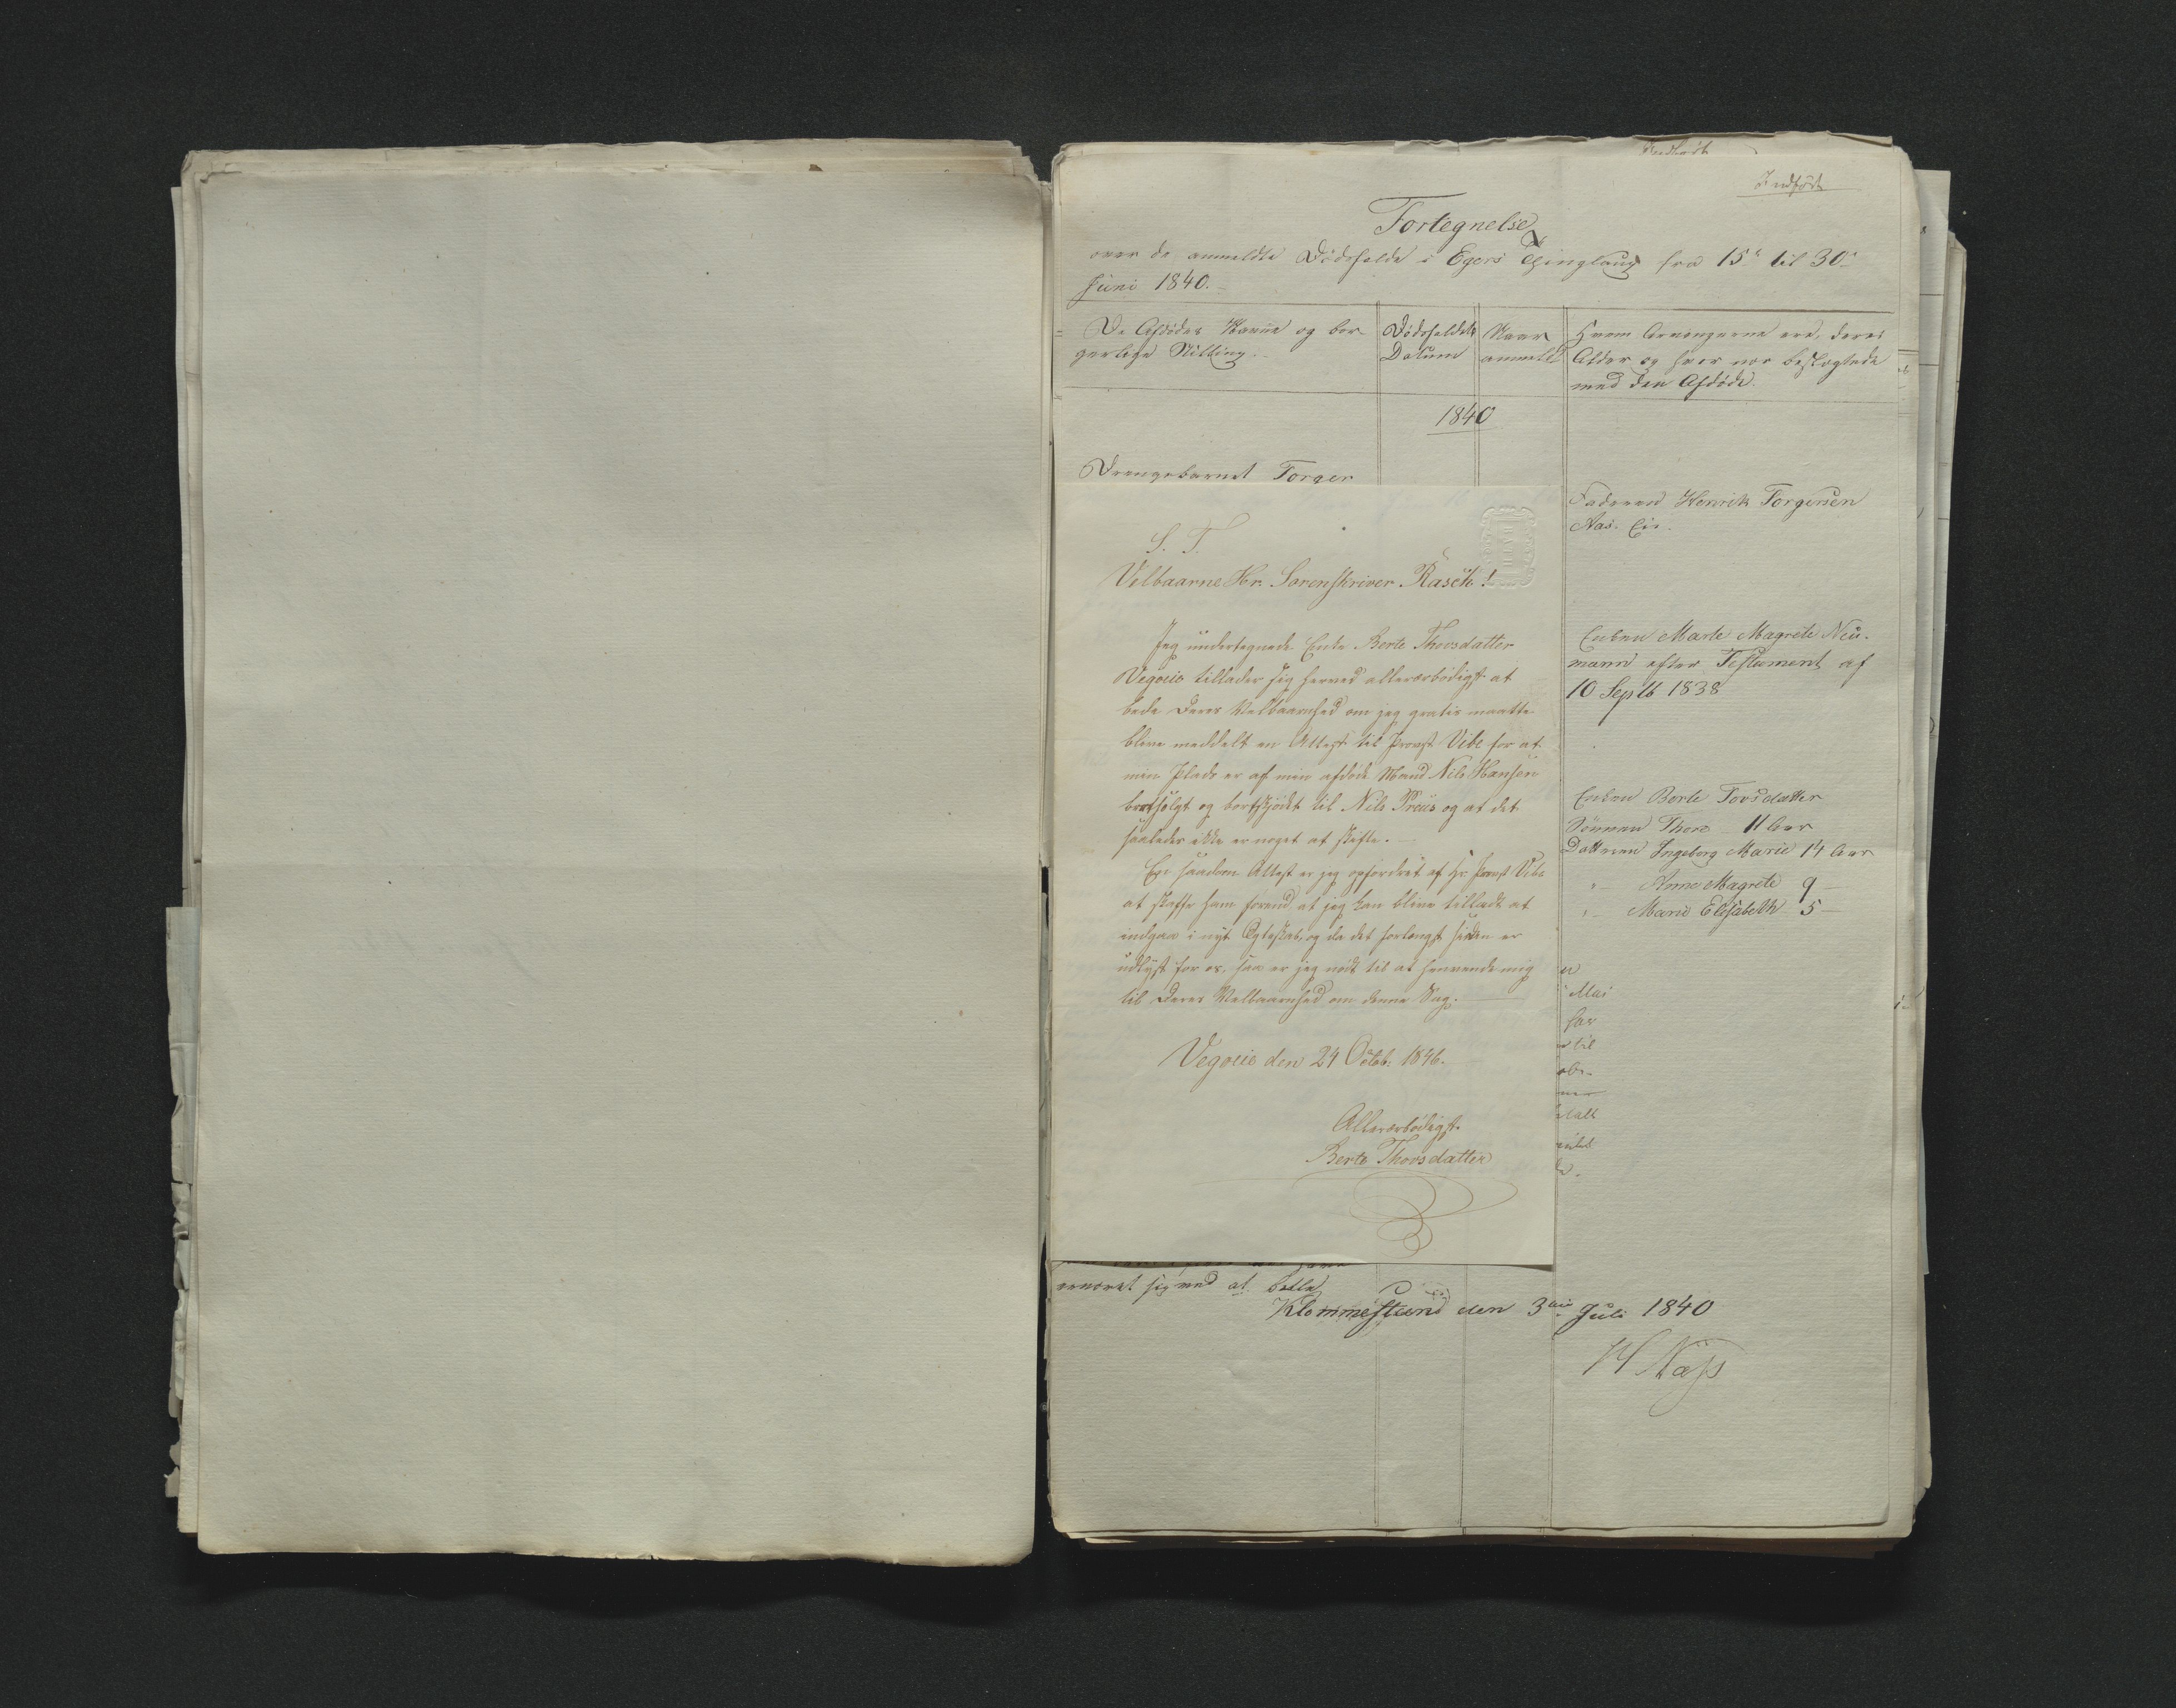 Indført
Fortegnelse
over de anmeldte Dødsfalde i Egers Thinglaug fra 15de til 30te
Juni 1840.
De Afdødes Navne og bor-
gerlige Stilling.
Dødsfaldets
Datum
Naar
anmeldt
Hvem Arvingerne ere, deres
Alder og hvor nær beslægtede
med den Afdøde.
1840
Drengebarnet Torger
Faderen Henrik Torgersen
Aas. Eie.
Enken Marte Magrete Neu-
mann efter Testament af
10 Septb 1838
Enken Berte Tovsdatter
Sønnen Thore 11 Aar
Datteren Ingeborg Marie 14 Aar
"– Anne Magrete 9 –
"– Marie Elisabeth 5 –
S. T.
Velbaarne Hr. Sorenskriver Rasch!
Jeg undertegnede Enke Berte Thovsdatter
Vegoeie tillader sig herved allerærbødigst at
bede Deres Velbaarnhed om jeg gratis maatte
blive meddelt en Attest til Provst Vibe for at
min Plads er af min afdøde Mand Nils Hansen
bortsolgt og bortskjødet til Nils Preüs og at det
saaledes ikke er noget at skifte.
En saadan Attest er jeg opfordret af Hr. Provst Vibe
at skaffe ham forend at jeg kan blive tilladt at
indgaa i nyt Ægteskab, og da det forlængst siden er
udlyst for os, saa er jeg nødt til at henvende mig
til Deres Velbaarnhed om denne Sag.
Vegoeie den 24 Octob: 1846.
Allerærbødigst.
Berte Thovsdatter
Mai
har
til
ernæret sig med at betle
Klommesteen den 3die Juli 1840
H Næss